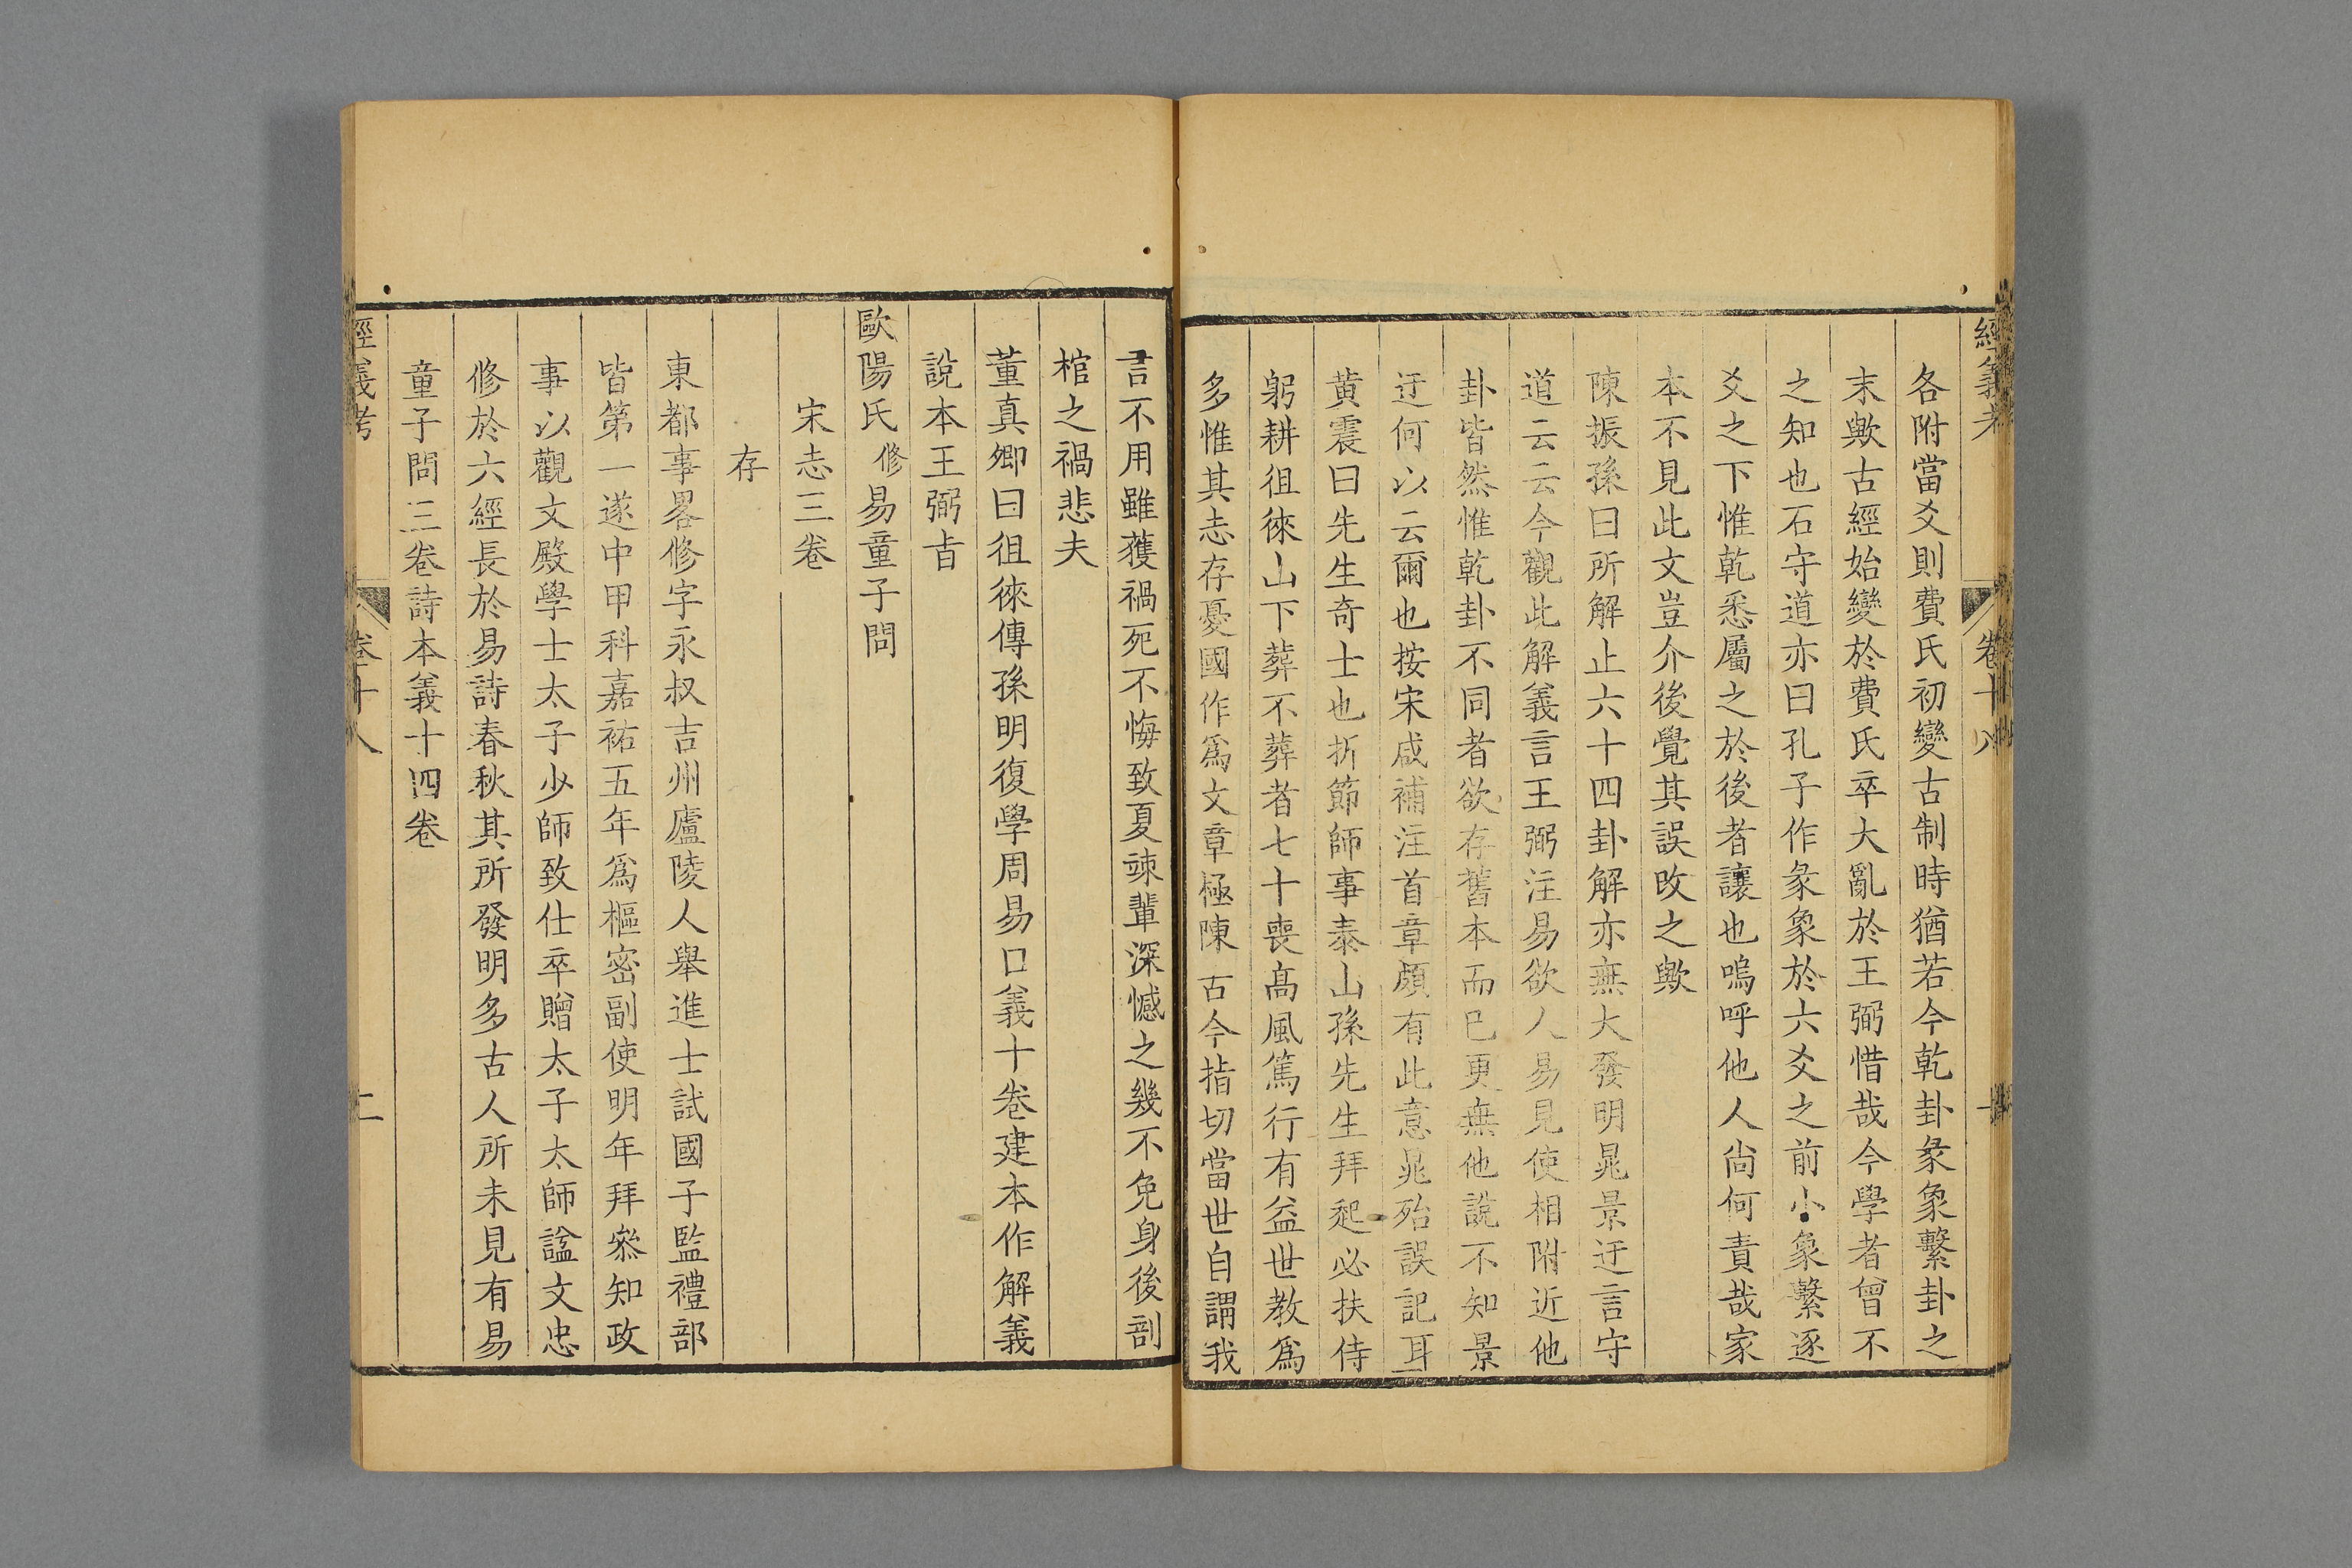 經義考 卷十八
各附當爻則費氏初變古制時猶若今乾卦彖象繫卦之
末歟古經始變於費氏卒大亂於王弼惜哉今學者曾不
之知也石守道亦曰孔子作彖象於六爻之前小象繫逐
爻之下惟乾悉屬之於後者讓也嗚呼他人尙何責哉家
本不見此文豈介後覺其誤改之歟
陳振孫曰所解止六十四卦解亦無大發明晁景迂言守
道云云今觀此解義言王弼注易欲人易見使相附近他
卦皆然惟乾卦不同者欲存舊本而已更無他說不知景
迂何以云爾也按宋咸補注首章頗有此意晁殆誤記耳
黃震曰先生奇士也折節師事泰山孫先生拜起必扶侍
躬耕徂徠山下葬不葬者七十喪高風篤行有益世教爲
多惟其志存憂國作爲文章極陳古今指切當世自謂我
言不用雖獲禍死不悔致夏竦輩深憾之幾不免身後剖
棺之禍悲夫
董真卿曰徂徠傳孫明復學周易口義十卷建本作解義
說本王弼㫖
歐陽氏修易童子問
宋志三卷
存
東都事畧修字永叔吉州廬陵人舉進士試國子監禮部
皆第一遂中甲科嘉祐五年爲樞密副使明年拜叅知政
事以觀文殿學士太子少師致仕卒贈太子太師諡文忠
修於六經長於易詩春秋其所發明多古人所未見有易
童子問三卷詩本義十四卷
經義考 卷十八 二